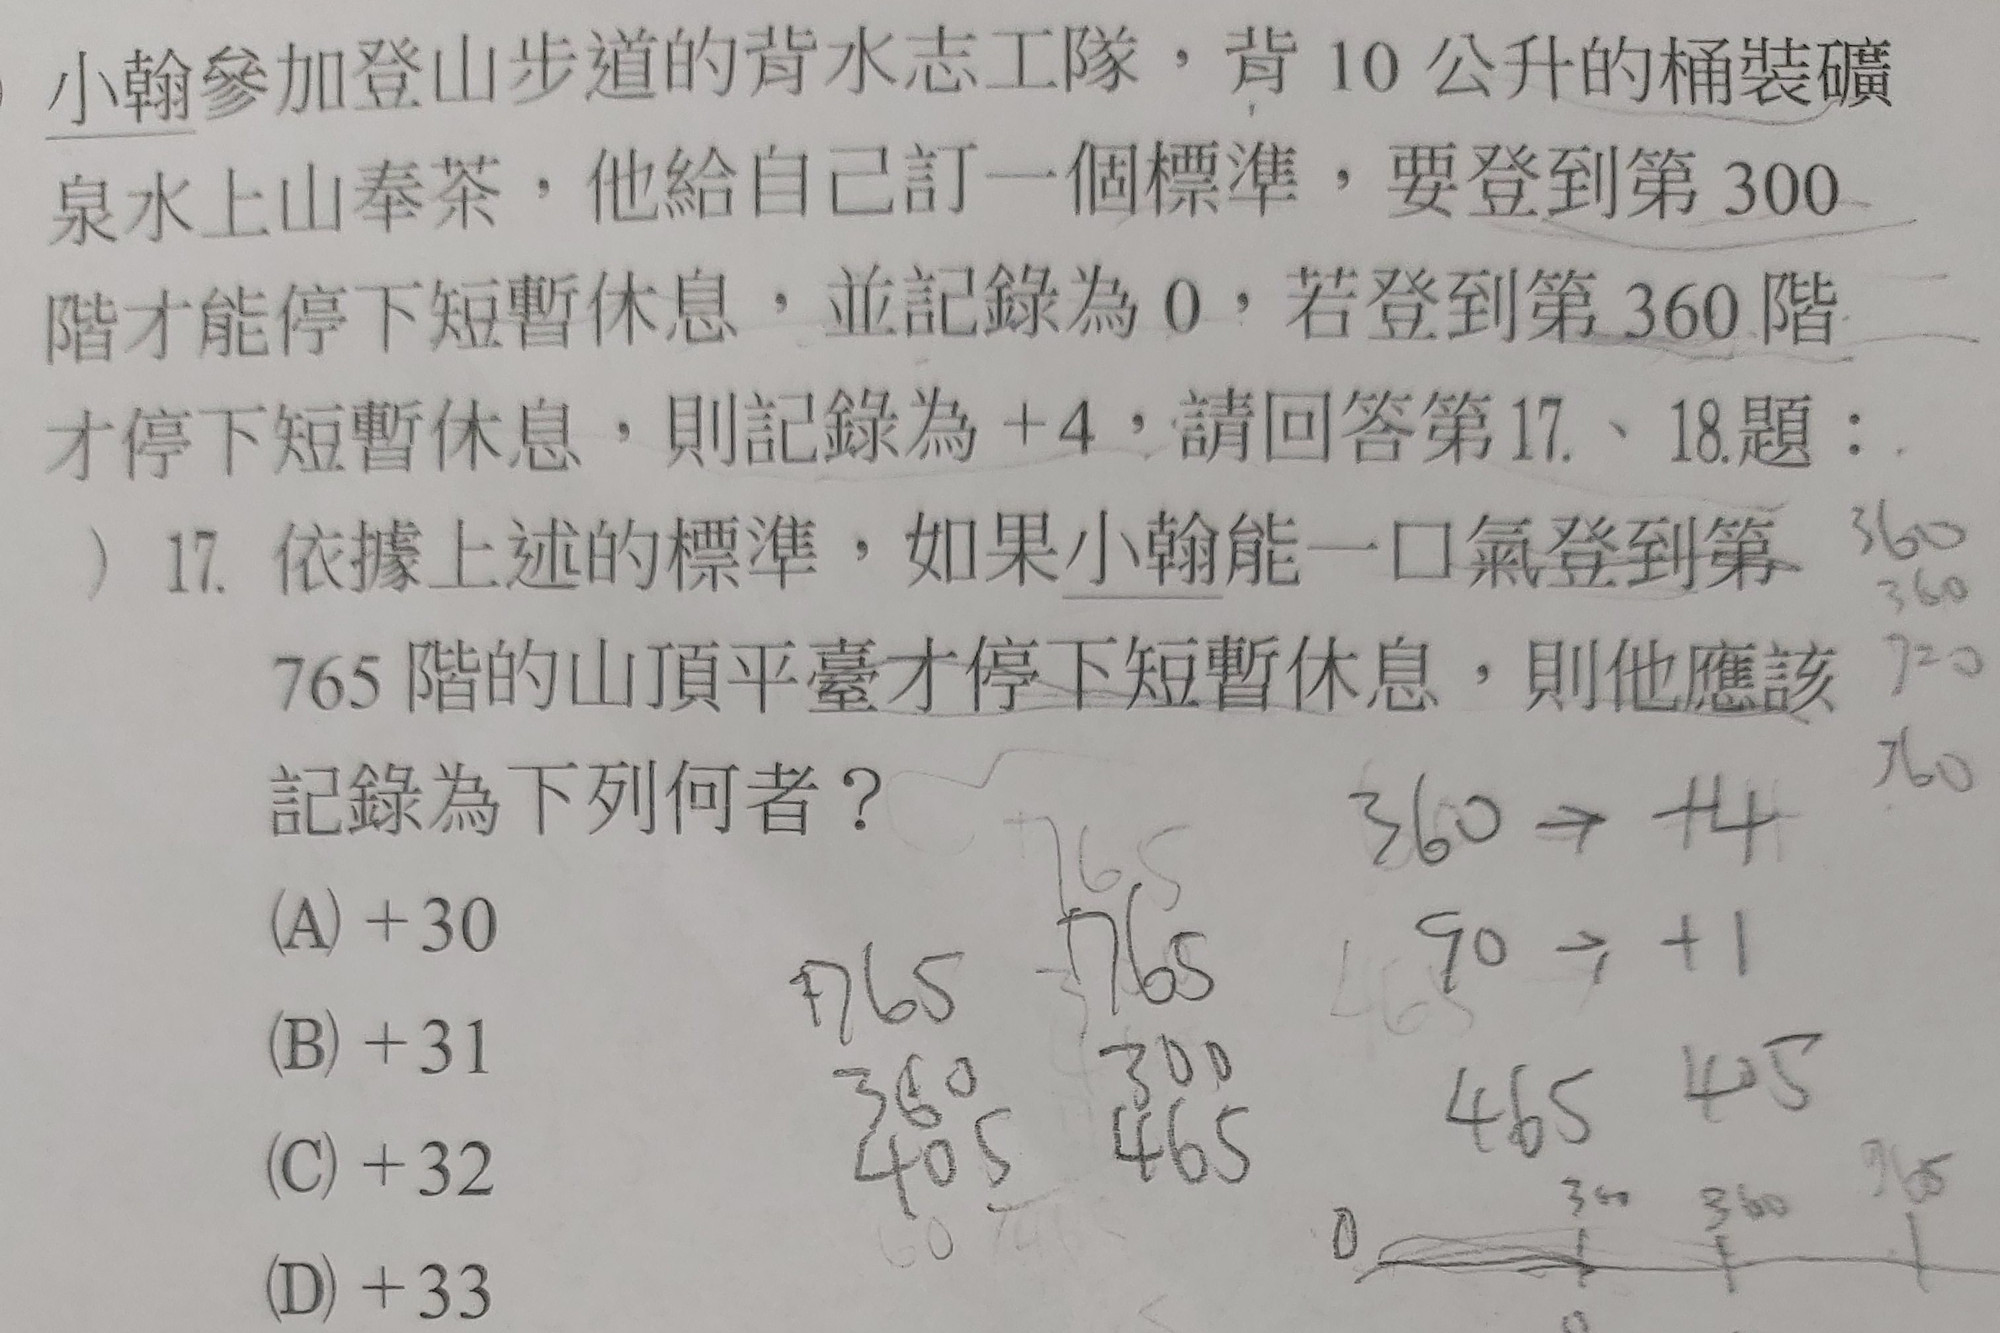 小翰參加登山步道的背水志工隊，背 10 公升的桶裝礦
泉水上山奉茶，他給自己訂一個標準，要登到第 300
階才能停下短暫休息，並記錄為 0，若登到第 360 階
才停下短暫休息，則記錄為＋4，請回答第17.、18.題：
） 17. 依據上述的標準，如果小翰能一口氣登到第
765 階的山頂平臺才停下短暫休息，則他應該
記錄為下列何者？
(A)＋30
(B)＋31
(C)＋32
(D)＋33
360
360
720
760
360 → +4
90 → +1
465 405
765
765
360
405
765
300
465
60
465
0 300 360 765
0